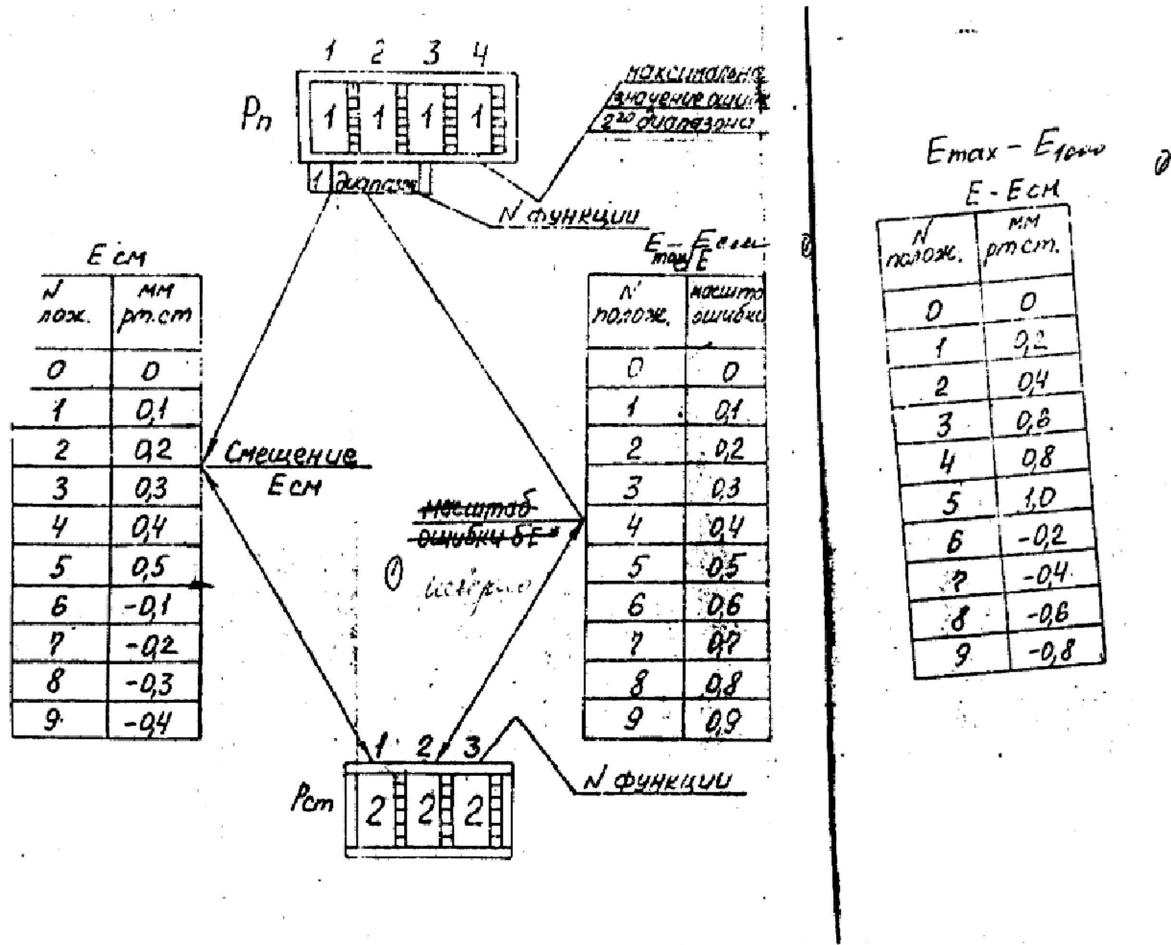 1 2 3 4
Рп
1 1 1 1
1 диапаз
максимальна
значение ошиб
2го диапазона
N функции
E см
N
лож.
мм
рт.ст
0 0
1 0,1
2 0,2
3 0,3
4 0,4
5 0,5
6 -0,1
7 -0,2
8 -0,3
9 -0,4
Смещение
E см
масштаб
ошибки δE*
N
полож.
масшта
ошибки
0 0
1 0,1
2 0,2
3 0,3
4 0,4
5 0,5
6 0,6
7 0,7
8 0,8
9 0,9
1 2 3
Рст
2 2 2
N функции
Emax - E1000
E - Eсм
N
полож.
мм
рт ст.
0 0
1 0,2
2 0,4
3 0,6
4 0,8
5 1,0
6 -0,2
7 -0,4
8 -0,6
9 -0,8